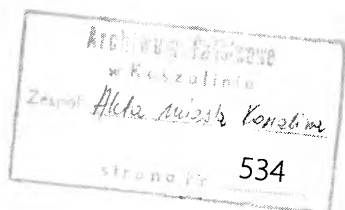 Archiwum Państwowe
w Koszalinie
Zespół Akta miasta Koszalina
strona nr 534